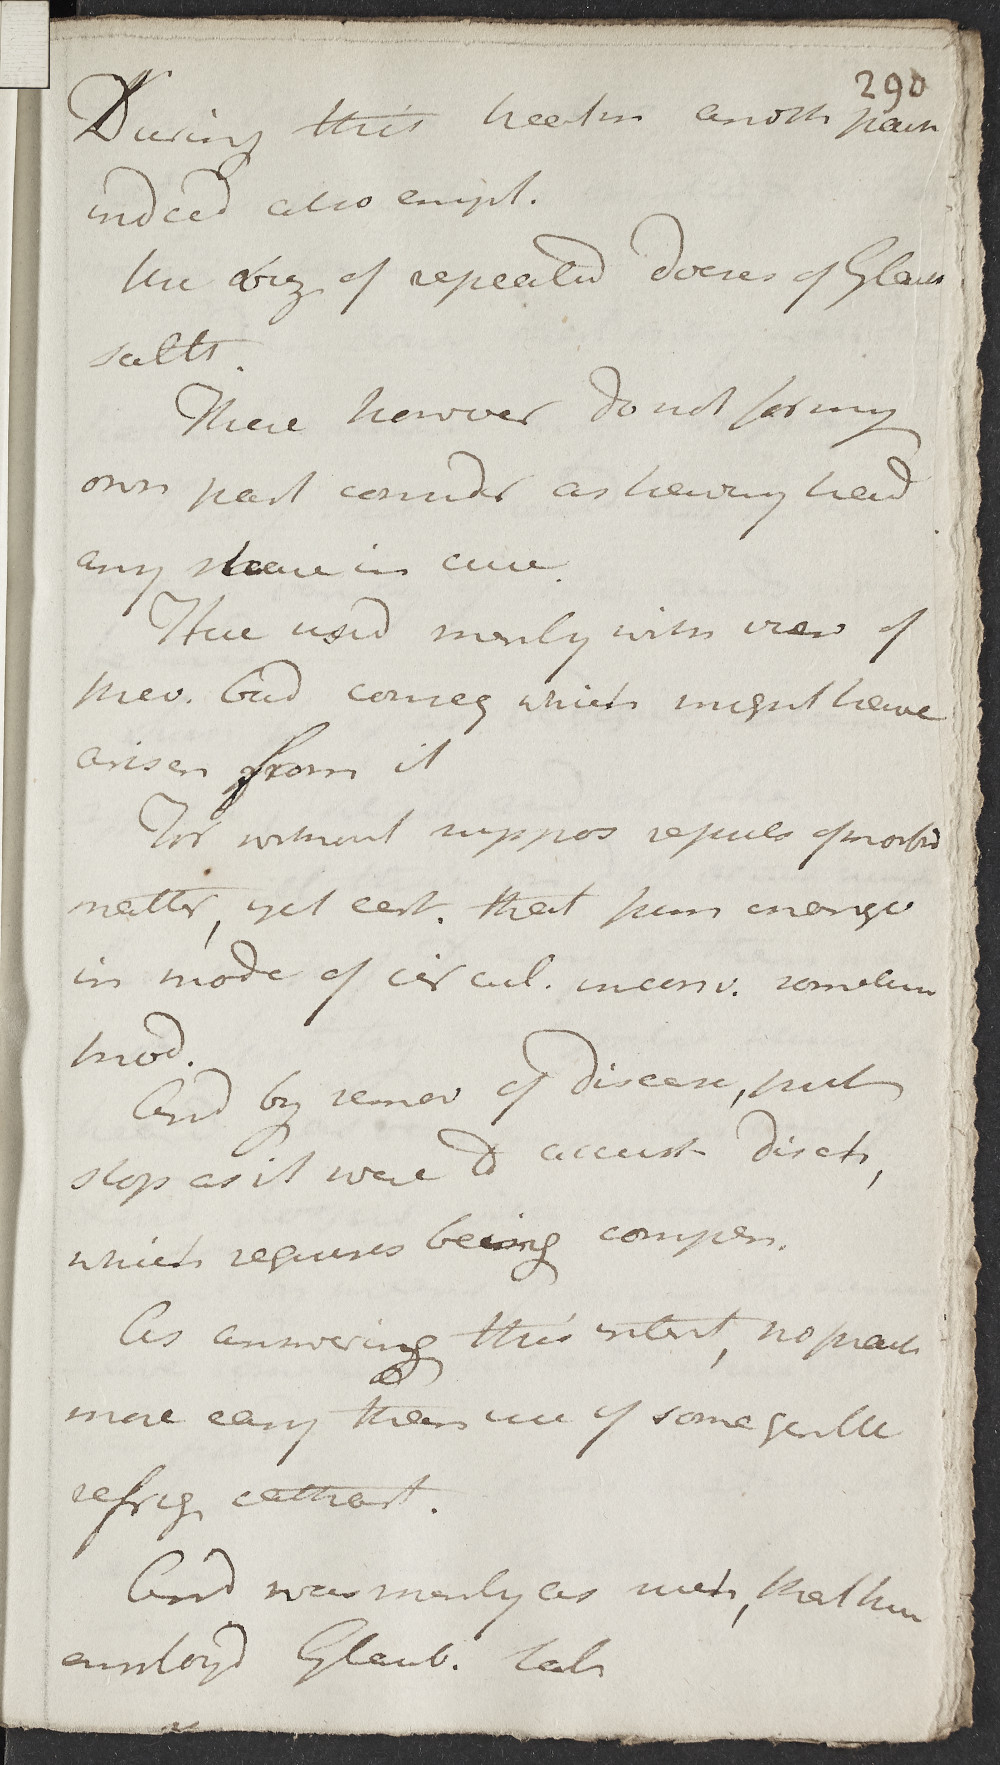 290
During this treatm anoth prac
indeed also empl.
the viz of repeated doses of Glaub
salts.
These however do not for my
own part consider as having had
any share in cure.
These used merly with view of
prev. bad conseq which might have
arisen from it
For without suppos repuls of morbid
matter, yet cert. that from change
in mode of circul. inconv. sometim
prod.
And by remov of disease, put
stop as it were to accust disch,
which requires being compen.
As answering this intent, no prac
more easy than use of some gentle
refrig cathart.
And was merly as such, that here
employd Glaub. salt